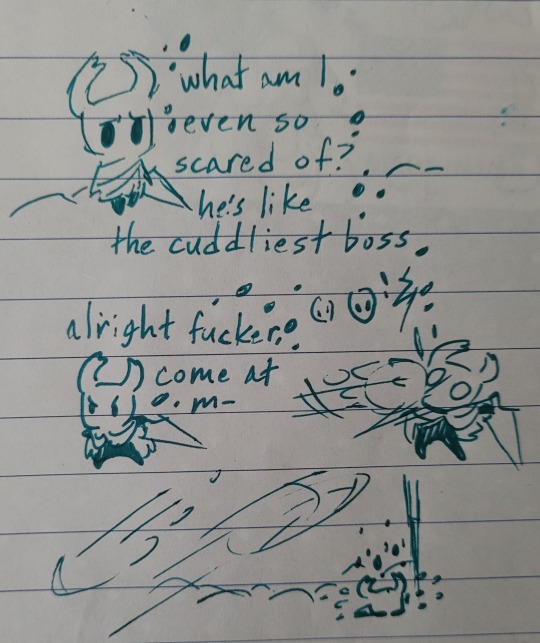 what am I
even so
scared of?
he's like
the cuddliest boss.
alright fucker,
come at
m-